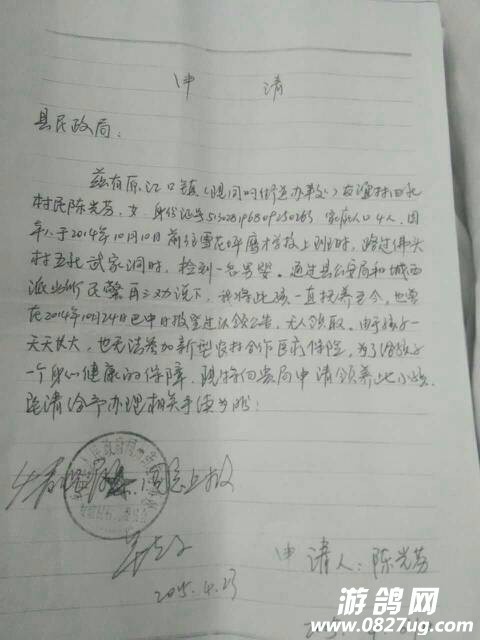 申 请
县民政局：
兹有原江口镇（现同州街道办事处）
村民陈光芬，女，身份证号513028196809250263，家庭人口4人，因
本人于2014年10月10日前往雪花坪磨子学校上班时，路过佛头
村五社武家洞时，捡到一名男婴。通过县公安局和城西
派出所民警再三劝说下，我将此孩一直抚养至今，也曾
在2014年10月24日巴中日报登过认领公告，无人领取。由于孩子一
天天长大，也无法参加新型农村合作医疗保险，为了给孩子
一个身心健康的保障，现特向贵局申请领养此小孩，
恳请给予办理相关手续为盼！
同意上报
2015.4.23
申请人：陈光芬
游鸽网
www.0827ug.com